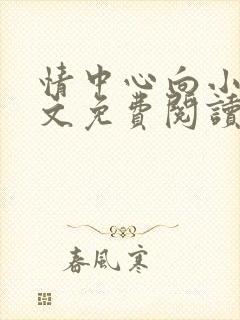 情中心向小
文免費閱讀
春風寒